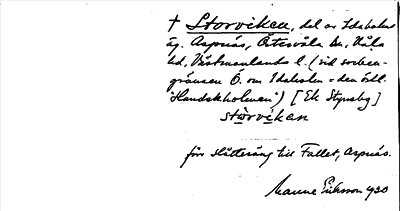 † Storviken, del av Idaholms
äg. Aspnäs, Östervåla sn, Våla
hd, Västmanlands l. (vid socken-
gränsen Ö. om Idaholm = den f.d.
"Handskholmen") [Ek Stynsby]
störvikan
förr slåtteräng till Fallet, Aspnäs.
Manne Eriksson 1930